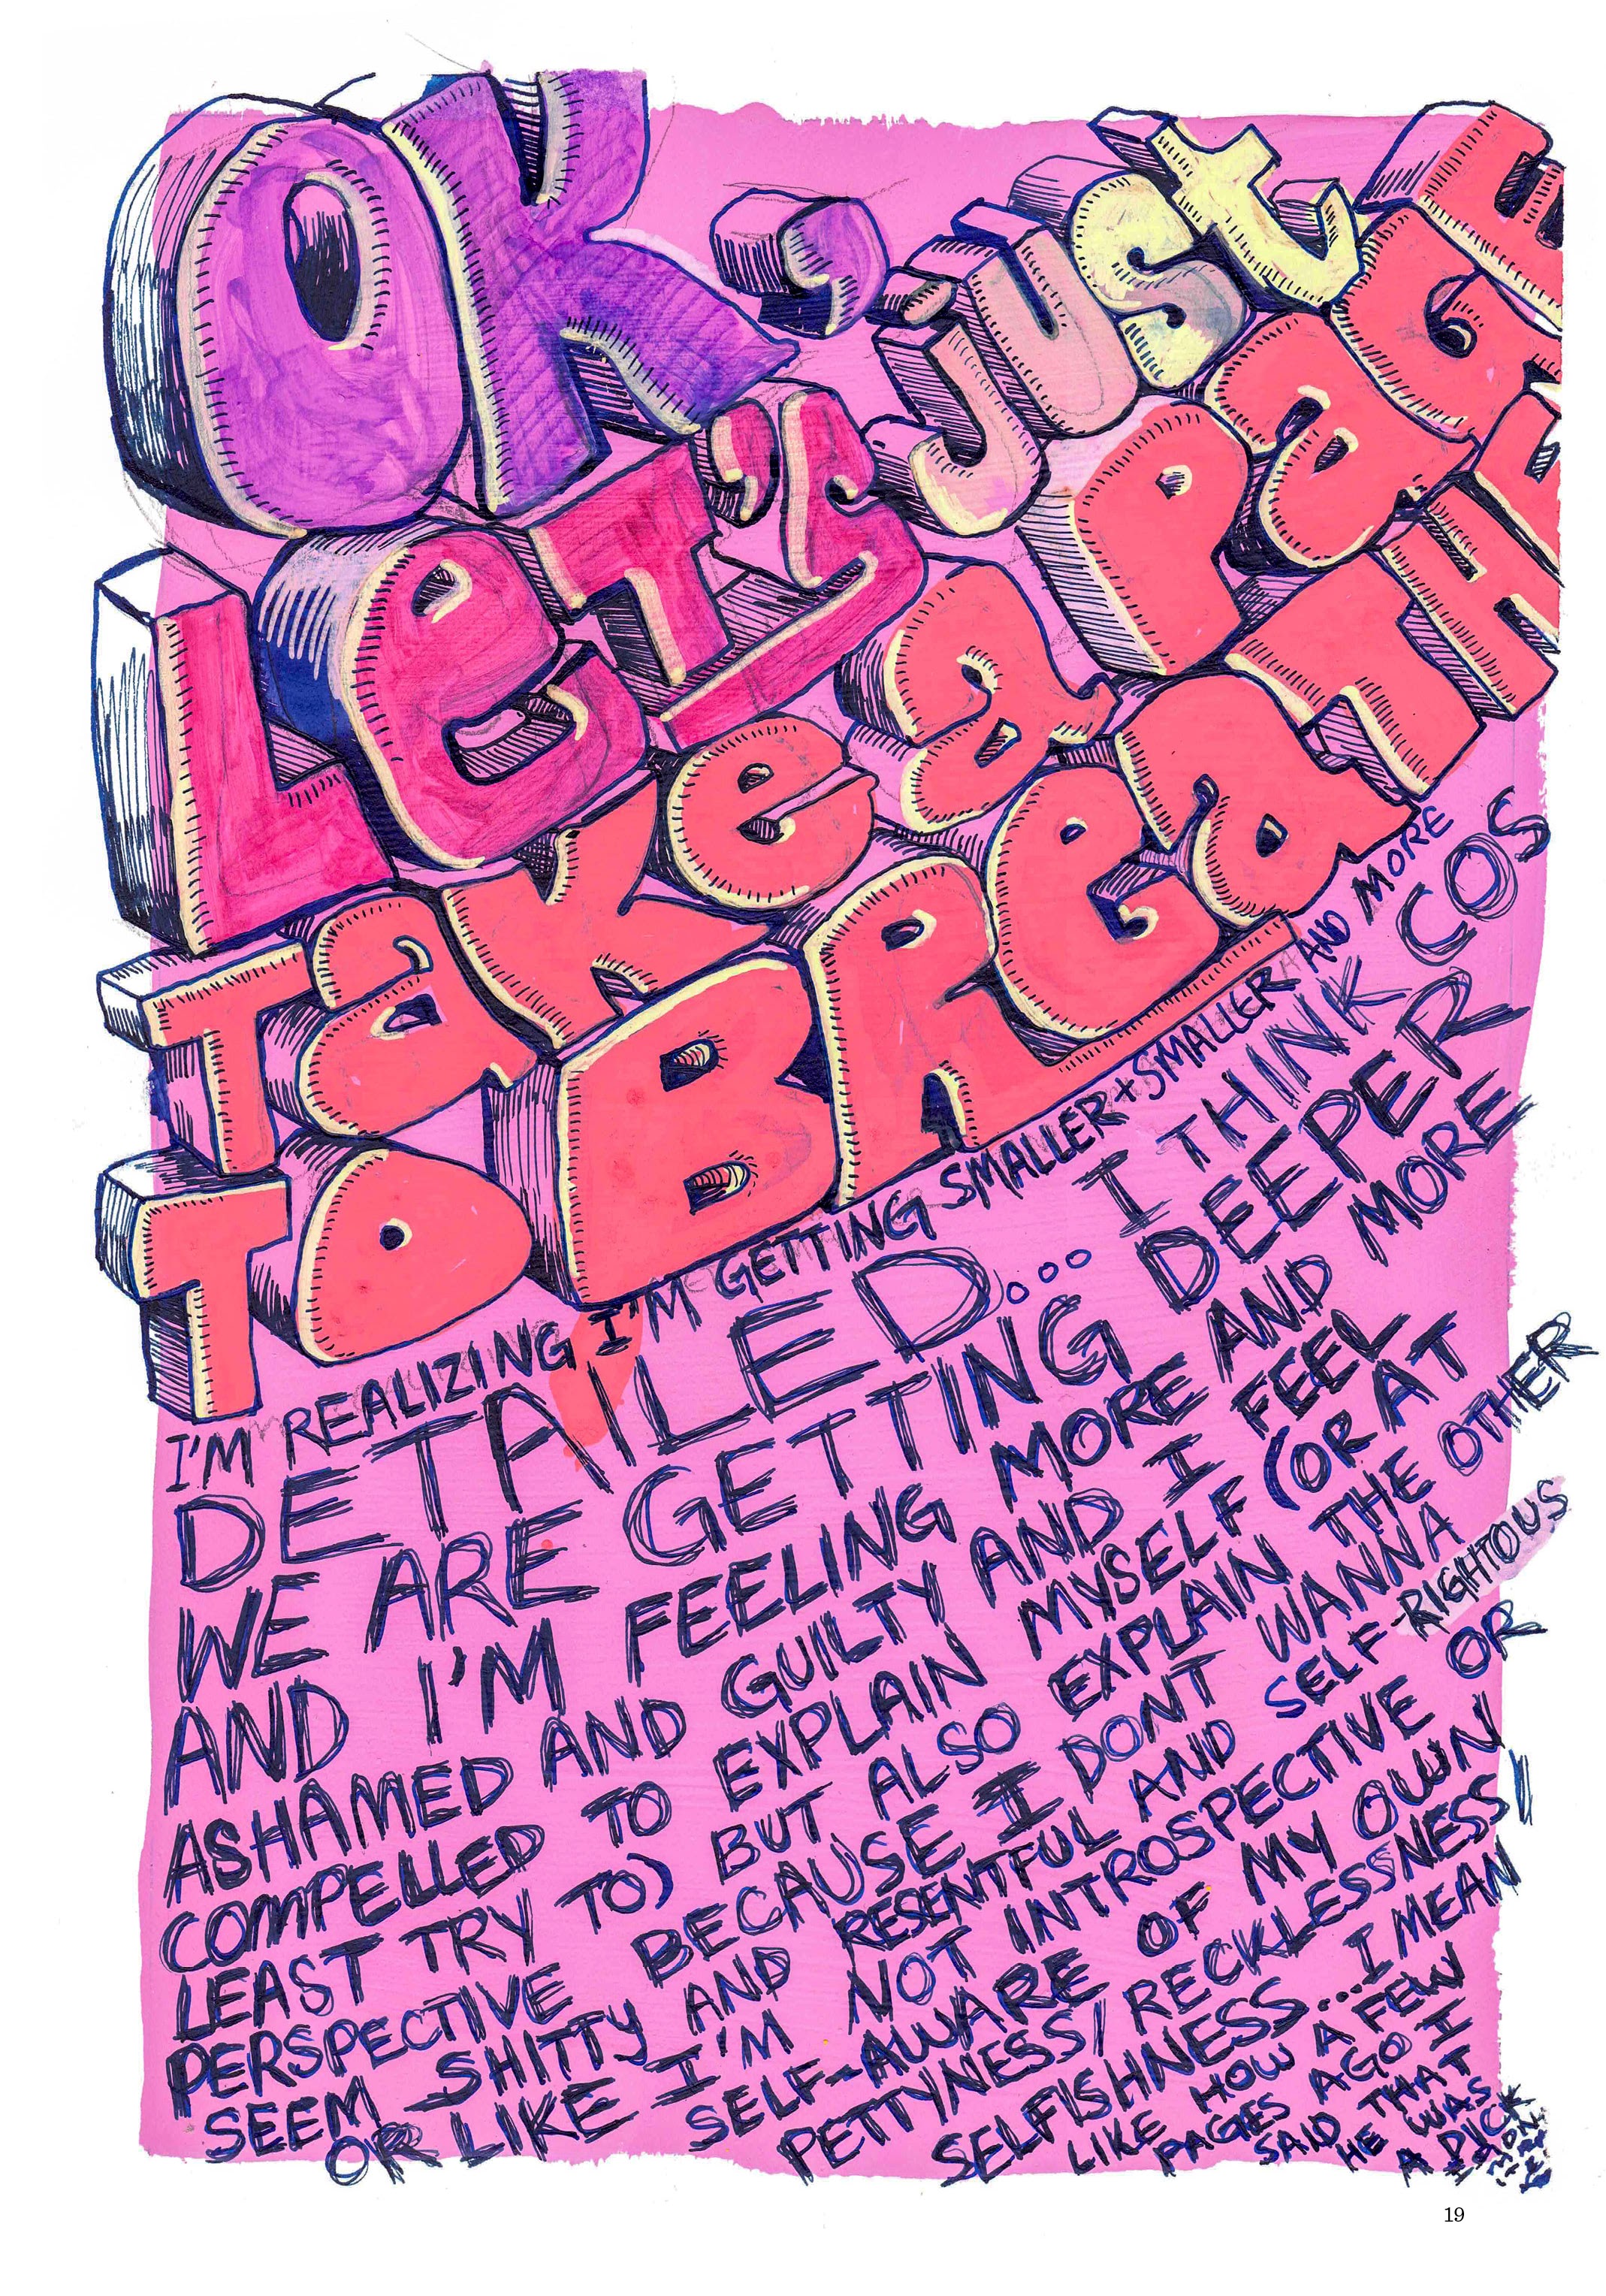 OK,
LeT's just
Take a PaGE
TO BReaTHE
I'M REALIZING I'M GETTING SMALLER + SMALLER AND MORE
DETAILED... I THINK COS
WE ARE GETTING DEEPER
AND I'M FEELING MORE AND MORE
ASHAMED AND GUILTY AND I FEEL
COMPELLED TO EXPLAIN MYSELF (OR AT
LEAST TRY TO) BUT ALSO EXPLAIN THE OTHER
PERSPECTIVE BECAUSE I DONT WANNA
SEEM SHITTY AND RESENTFUL AND SELF-RIGHTOUS
OR LIKE I'M NOT INTROSPECTIVE OR
SELF-AWARE OF MY OWN
PETTYNESS/ RECKLESSNESS/
SELFISHNESS...I MEAN
LIKE HOW A FEW
PAGES AGO I
SAID THAT
HE WAS
A DICK
19